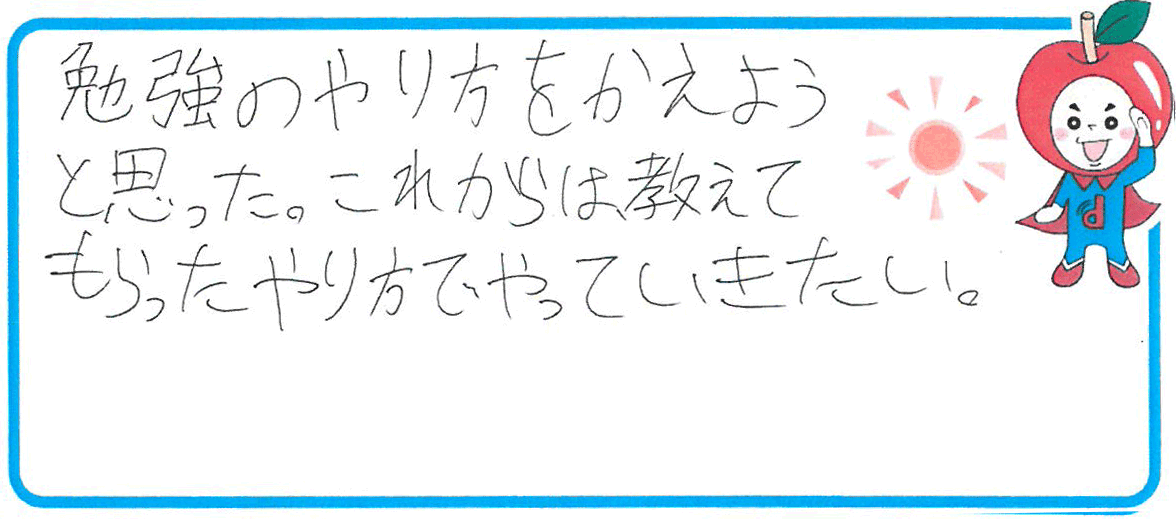 勉強のやり方をかえよう
と思った。これからは教えて
もらったやり方でやっていきたい。